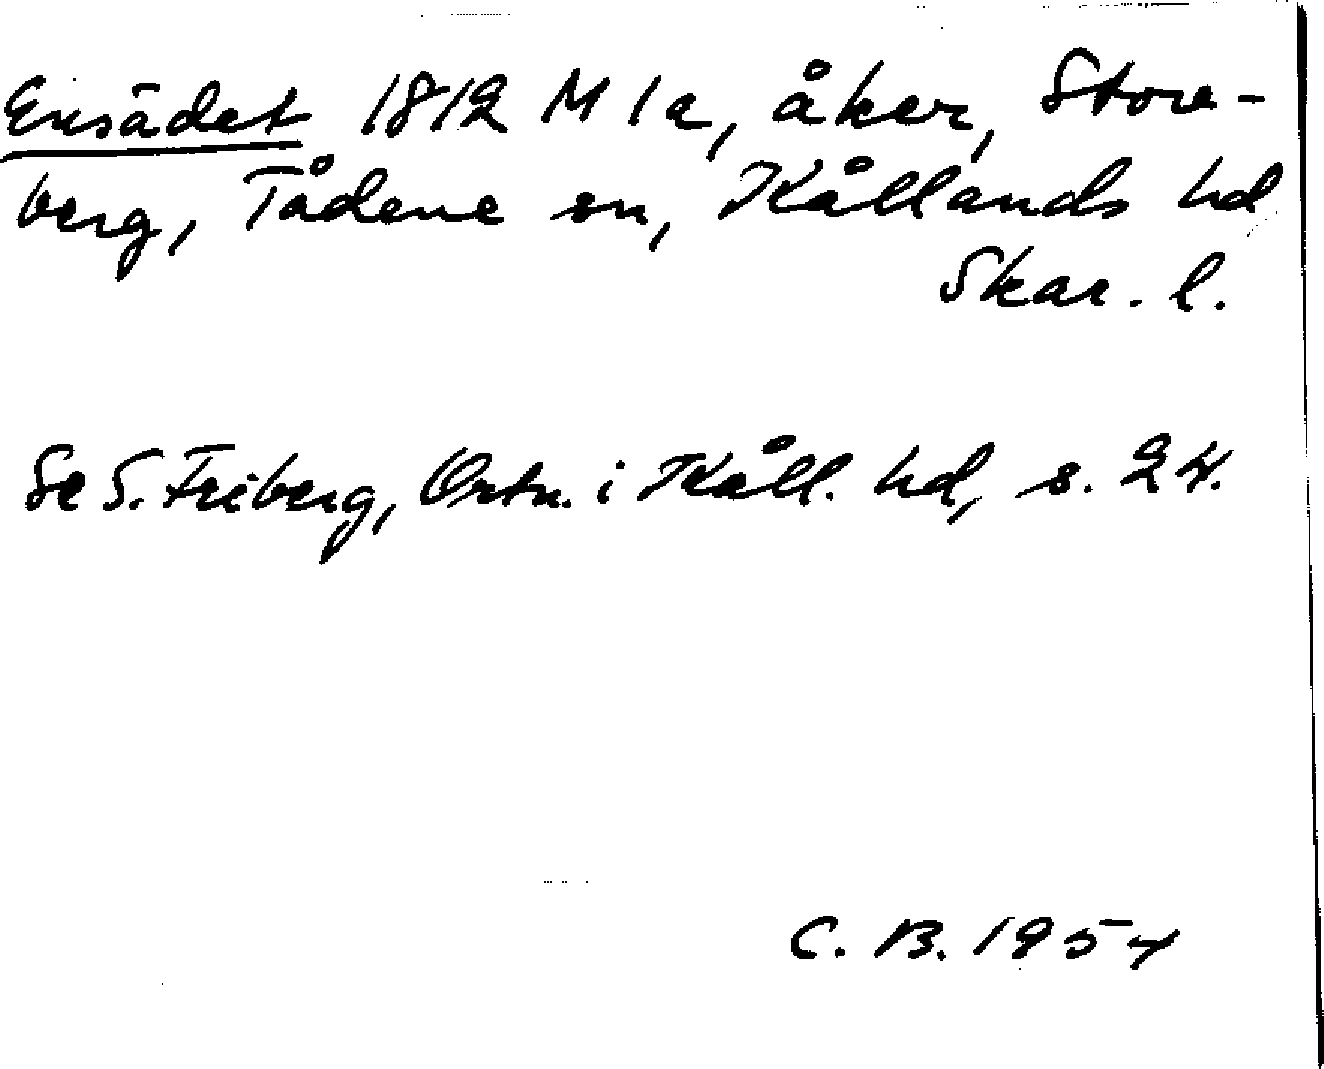 Ensädet 1812 M 1a, åker, Store-
berg, Tådene sn, Kållands hd
Skar. l.
Se S. Friberg, Ortn. i Kåll. hd, s. 24.
C. B. 1954